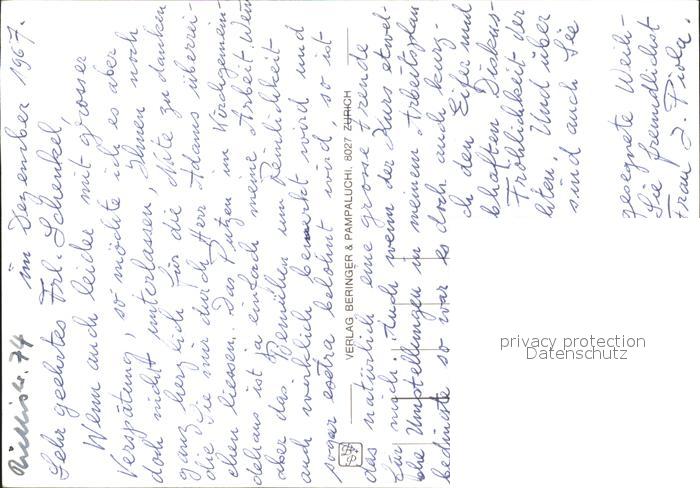 im Dezember 1967.
Sehr geehrtes Frl. Schenkel,
Wenn auch leider mit grosser
Verspätung, so möchte ich es aber
doch nicht unterlassen, Ihnen noch
ganz herzlich für die Nüte zu danken
die Sie mir durch Herr Adams überrei-
chen liessen. Das Putzen im Kirchgemein-
dehaus ist ja einfach meine Arbeit. Wenn
aber das Bemühen um Reinlichkeit
auch wirklich bemerkt wird und
sogar extra belohnt wird, so ist
das natürlich eine grosse Freude
für mich. Auch wenn der Kurs etwel-
che Umstellungen in meinem Arbeitsplan
bedingte so war es doch auch kurz-
den Eifer und
bhaften Diskus-
Fröhlichkeit der
hten. Und über
sind auch Sie
gesegnete Weih-
Sie freundlichst
Frau J. Piola.
VERLAG BERINGER & PAMPALUCHI, 8027 ZÜRICH
privacy protection
Datenschutz